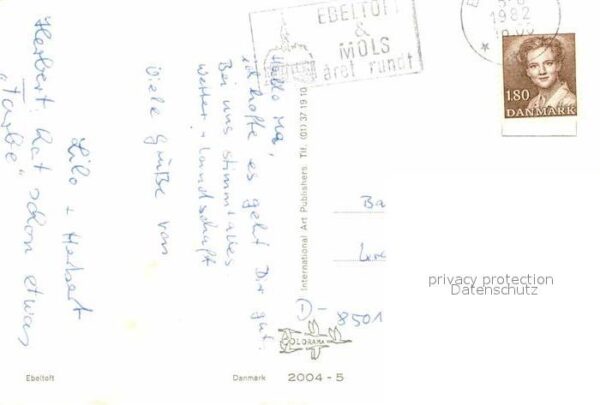 EBELTOFT
&
MOLS
året rundt
1982
1.80
DANMARK
Hallo Ma,
ich hoffe es geht Dir gut.
Bei uns stimmt alles
Wetter + Landschaft
Viele Grüße von
Lilo + Herbert
Herbert hat schon etwas
"Farbe"
International Art Publishers. Tlf. (01) 37 19 10
Ba
D-8501
privacy protection
Datenschutz
COLORAMA
Ebeltoft
Danmark
2004-5